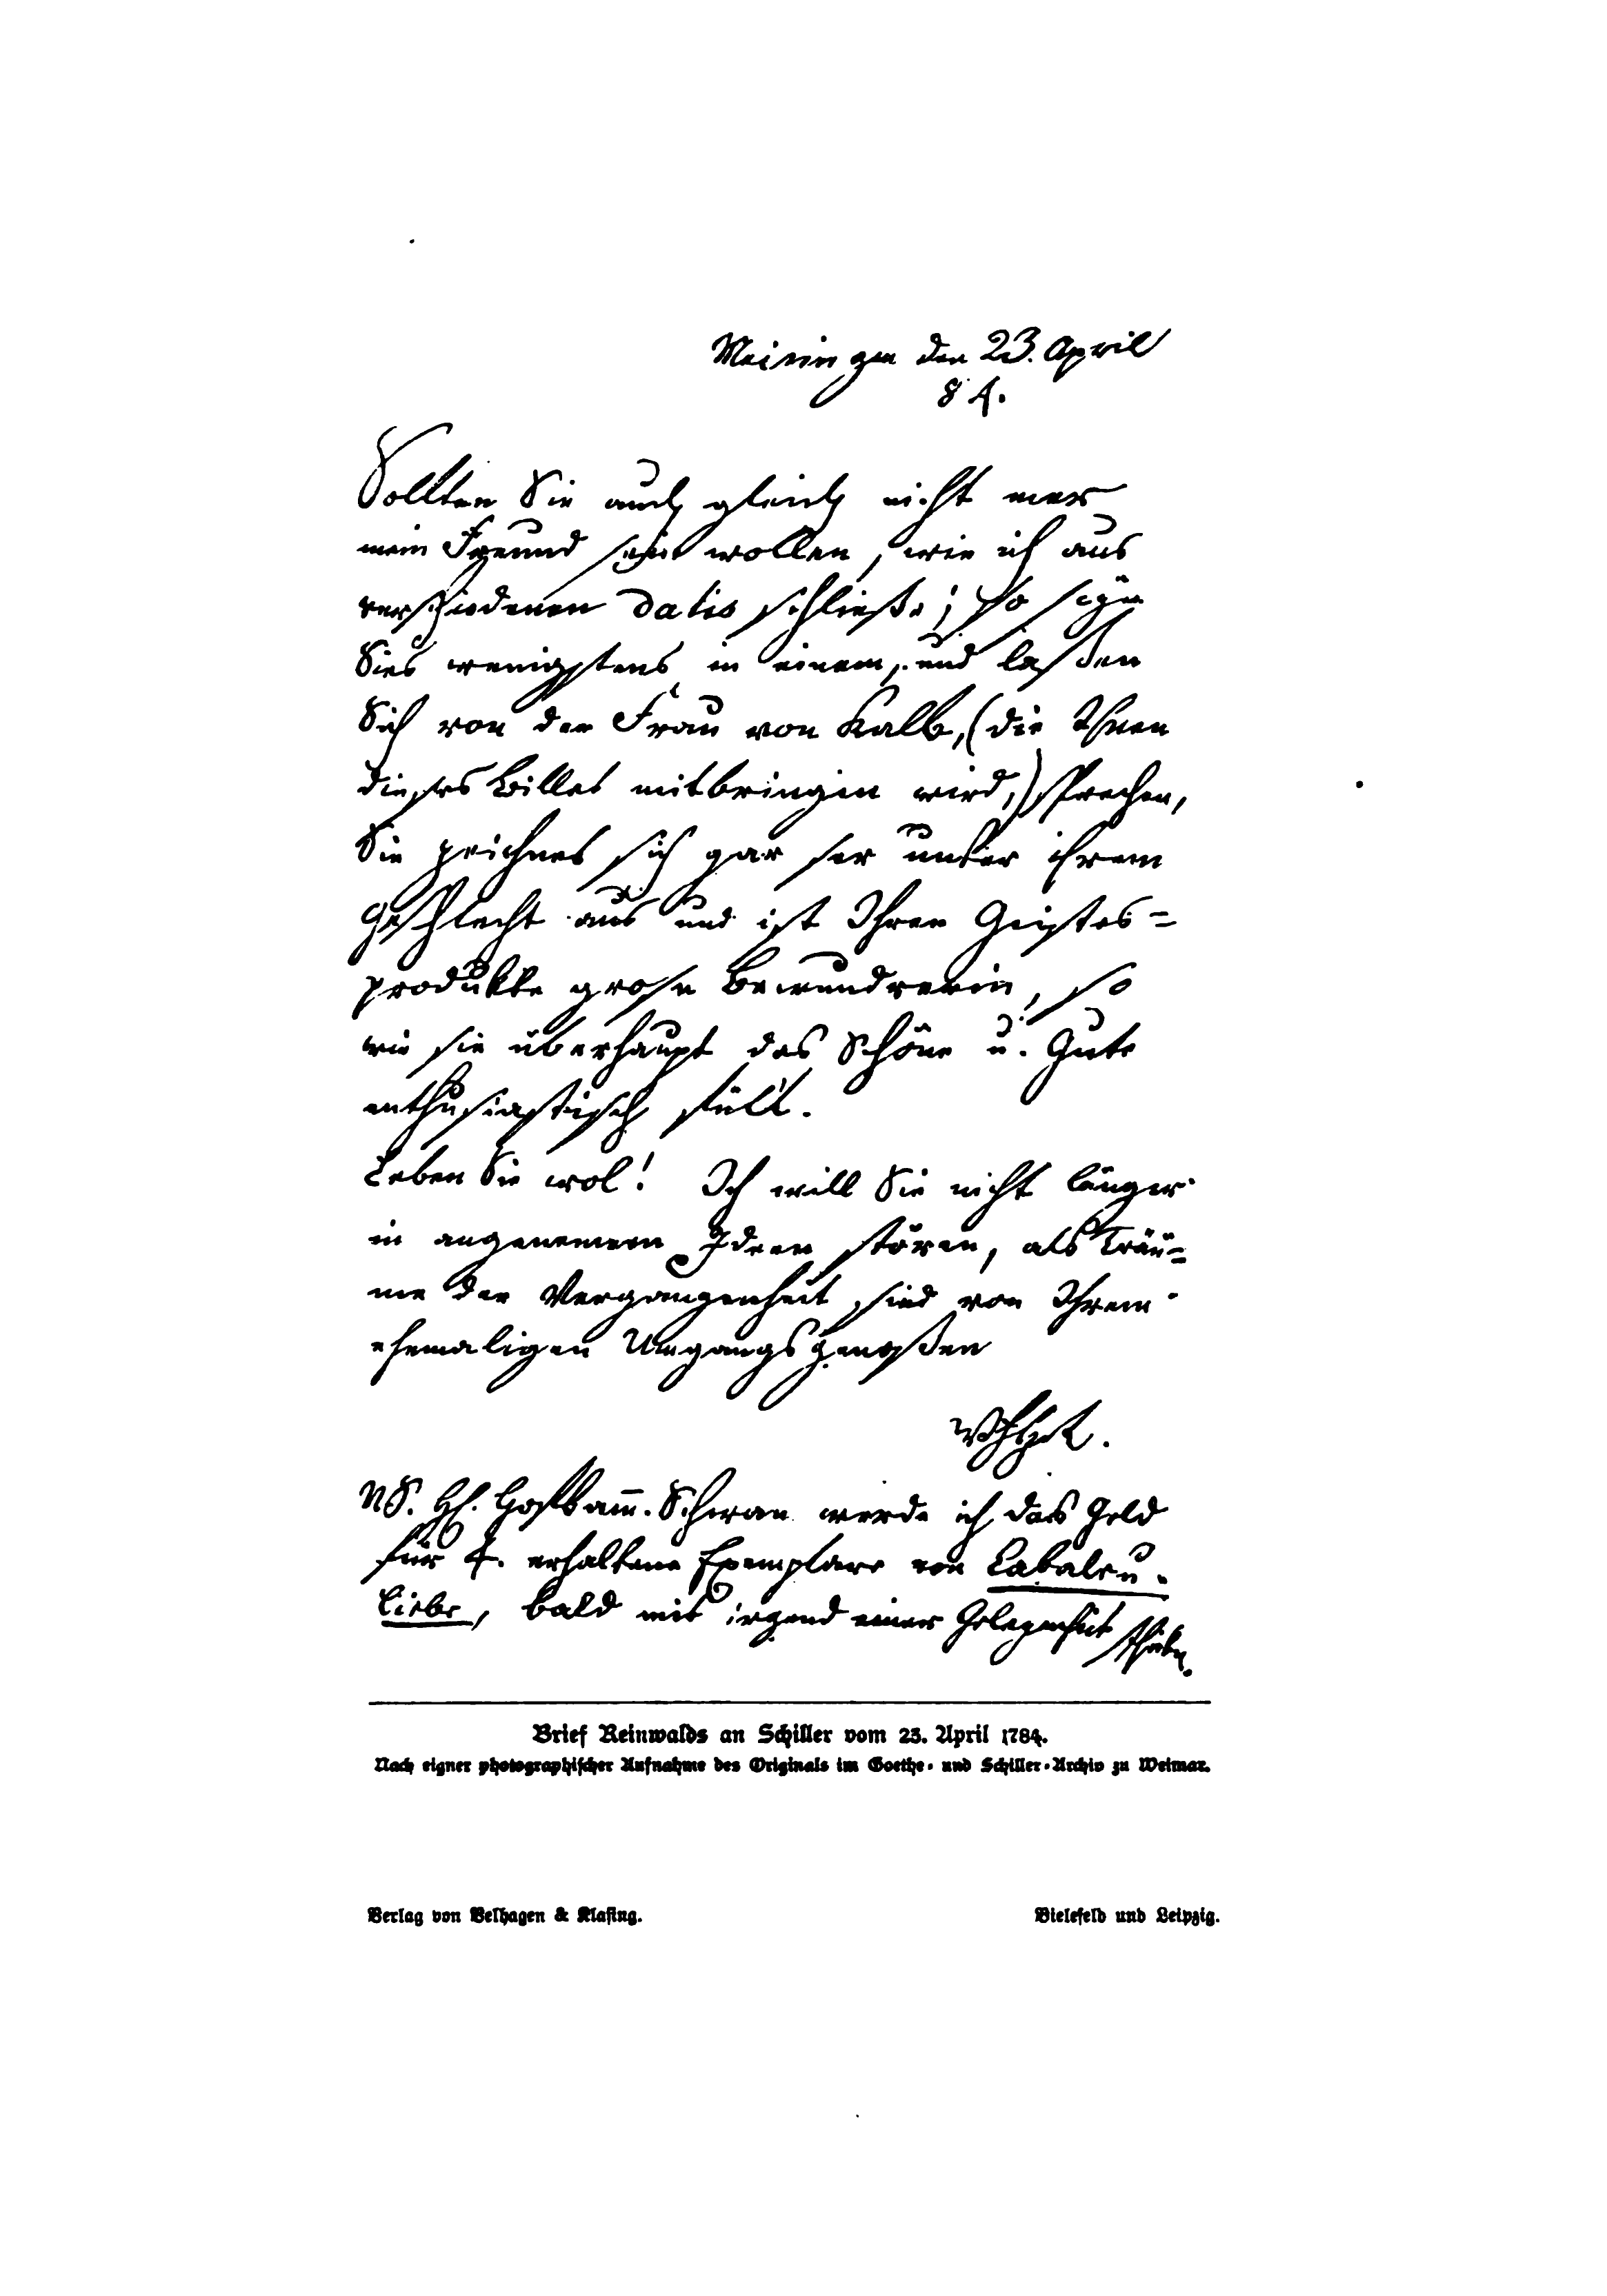 Meiningen den 23. April
84.
Sollten Sie auch gleich nicht mer
mein Freund seyn wollen, wie ich aus
verschiedenen datis schließe; so seyn
Sies wenigstens in einem, und laßen
Sich von der Frau von Kalb, (die Ihnen
dieses Billet mitbringen wird,) sprechen,
Sie zeichnet sich gar ser unter ihrem
Geschlecht aus und ist Ihrer Geistes=
produkte große Bewundrerin, so
wie sie überhaupt das Schöne u. Gute
enthusiastisch fült.
Leben Sie wol! Ich will Sie nicht länger
in angenemern Ideen stören, als Träu=
me der Vergangenheit sind von Ihrem
ehemaligen Umgangsgenoßen
NS. Hf. Hofkamm. Schwan werde ich das Geld
für 4. erhaltene Exemplare von Cabale u.
Liebe, bald mit irgend einer Gelegenheit
Brief Reinwalds an Schiller vom 23. April 1784.
Nach eigner photographischer Aufnahme des Originals im Goethe- und Schiller-Archiv zu Weimar.
Verlag von Velhagen & Klasing. Bielefeld und Leipzig.